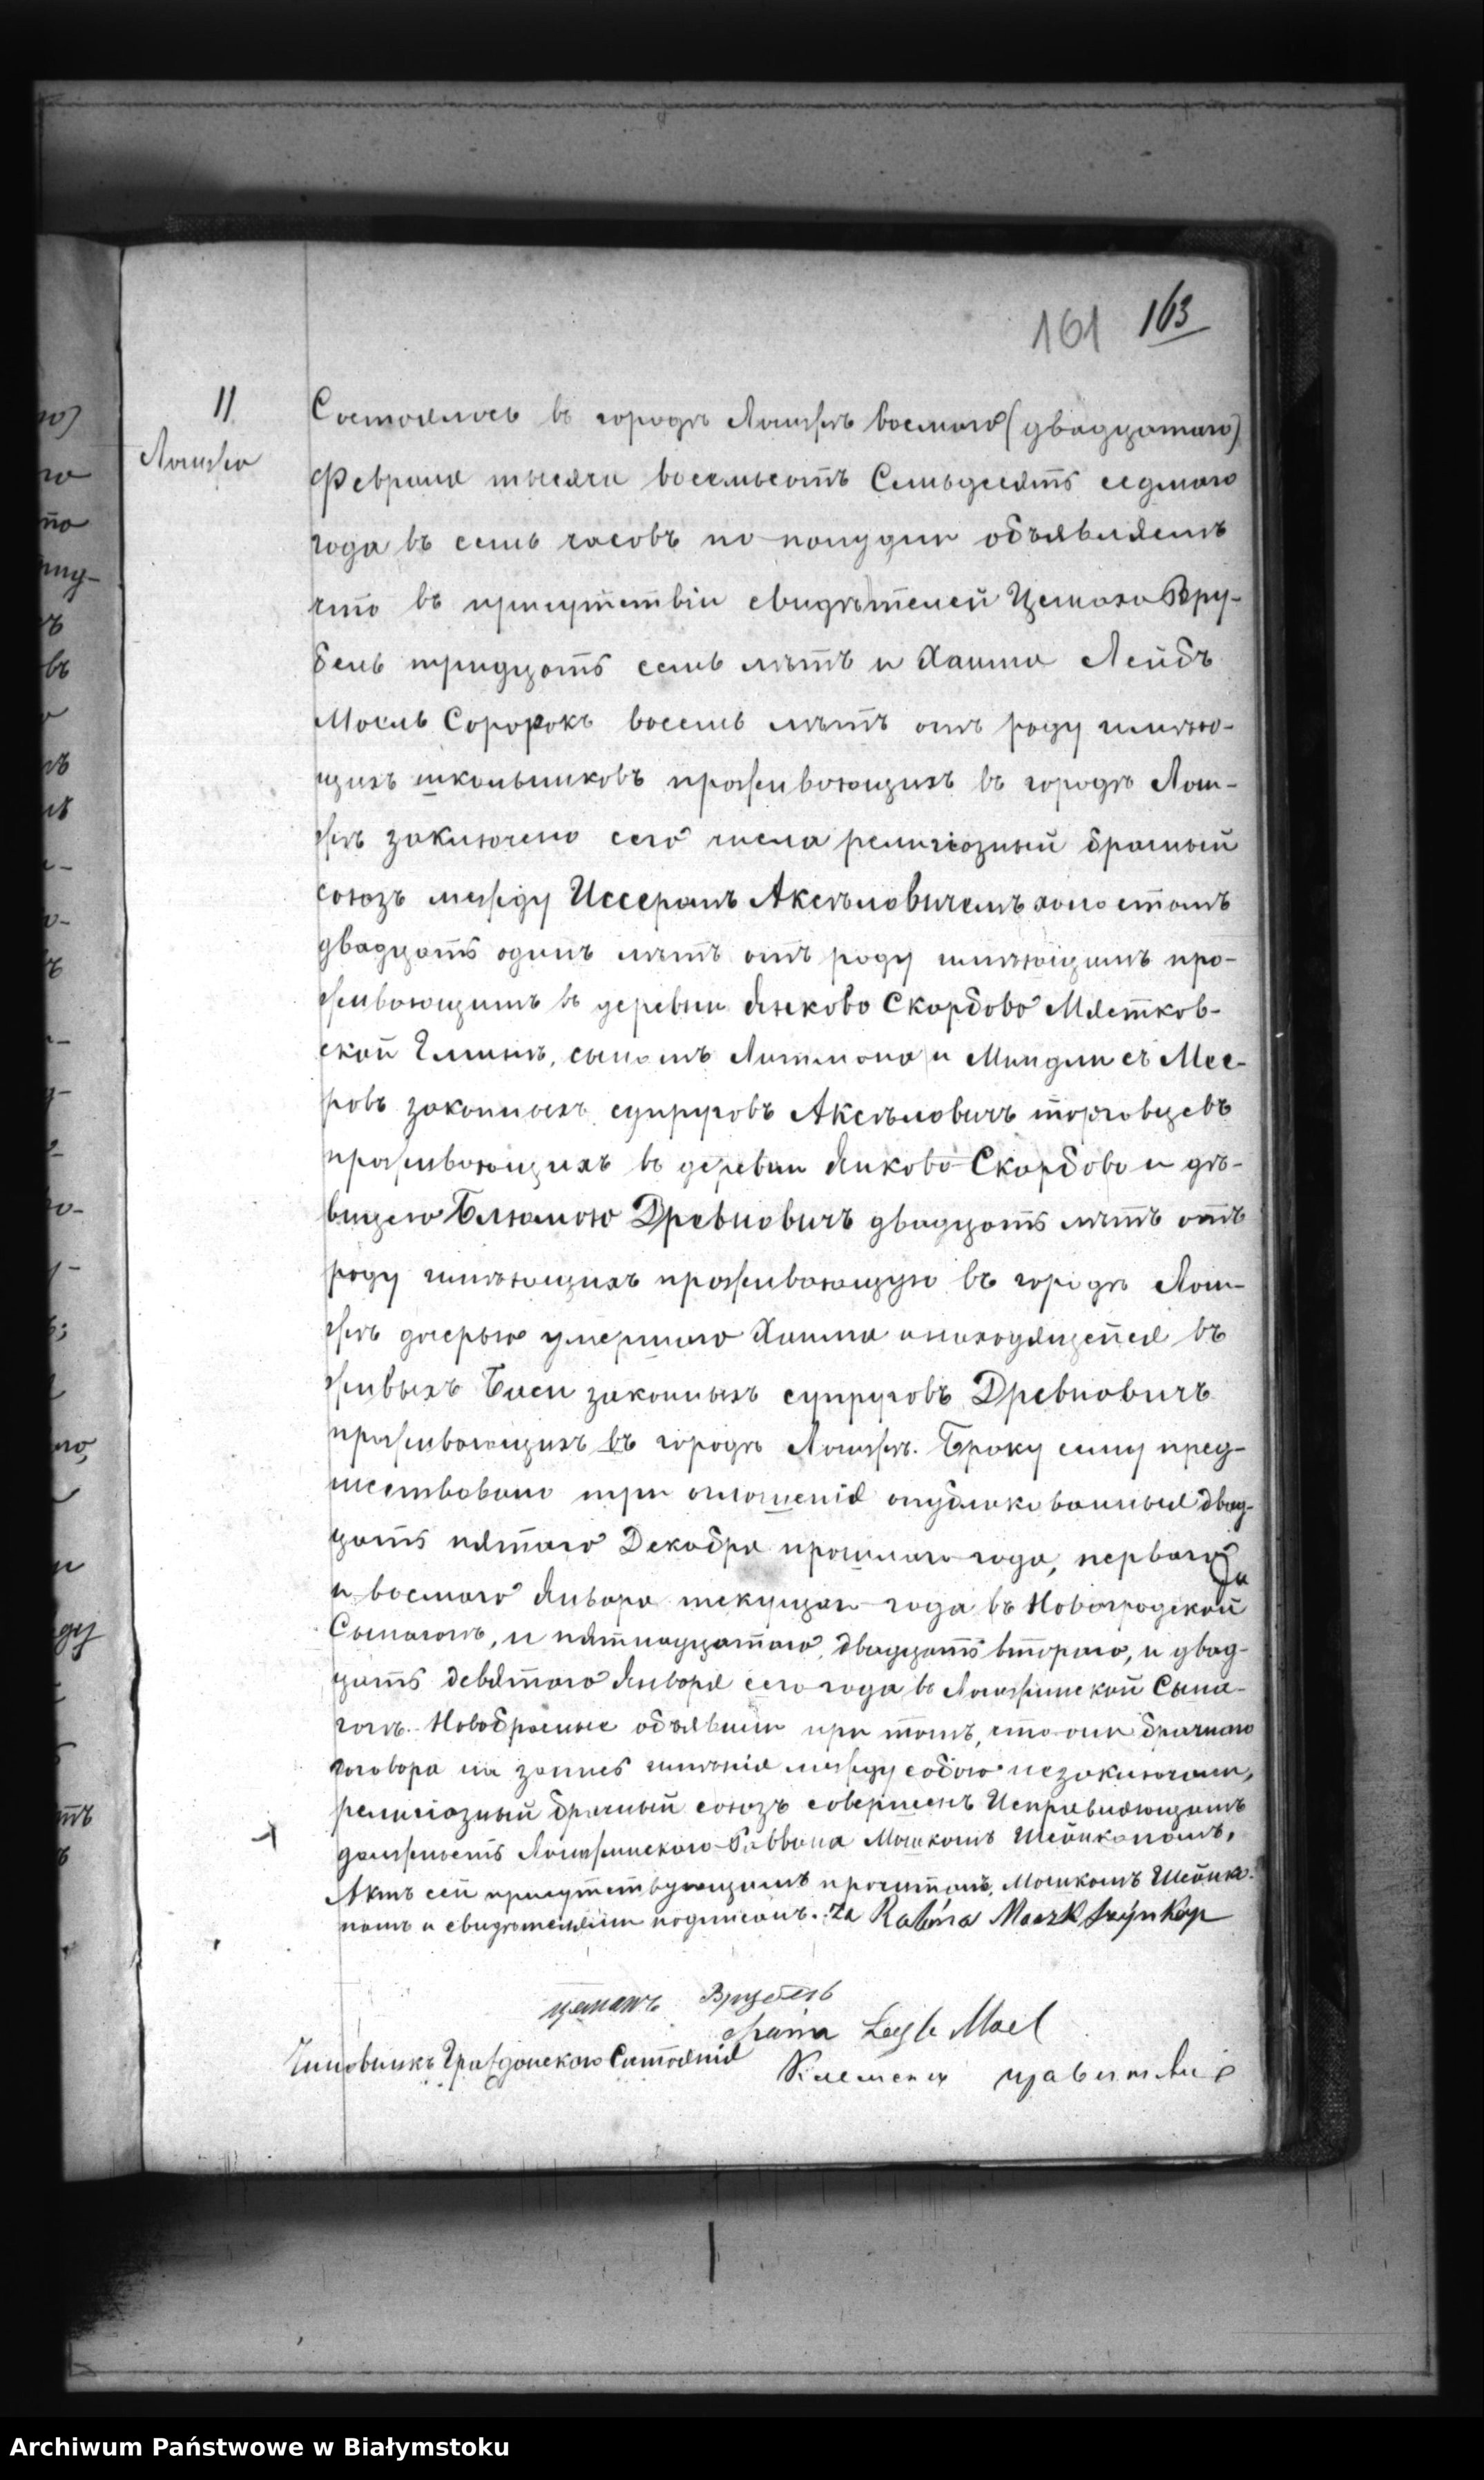 161 163
11
Ломжа
Состоялось въ городѣ Ломжѣ восмого (двадцатого)
Февраля тысяча восемьсотъ Семьдесятъ седмого
года въ семь часовъ по полудни объявляемъ
что въ присутствіи свидѣтелей Цемаха Вру-
бель тридцать семь лѣтъ и Хаима Лейбъ
Моель Соророкъ восемь лѣтъ отъ роду имѣю-
щихъ школьниковъ проживающихъ въ городѣ Лом-
жѣ заключено сего числа религіозный брачный
союзъ между Иссеромъ Аксѣловичемъ холостомъ
двадцать одинъ лѣтъ отъ роду имѣющимъ про-
живающимъ въ деревни Янково Скарбово Мястков-
ской Гмины, сыномъ Литмана и Миндли съ Мее-
ровъ законныхъ супруговъ Аксѣловичъ торговцевъ
проживающихъ въ деревни Янково Скарбово и дѣ-
вицею Блюмою Древновичъ двадцать лѣтъ отъ
роду имѣющихъ проживающую въ городѣ Лом-
жѣ дочерью умершаго Хаима и находящейся въ
живыхъ Баси законныхъ супруговъ Древновичъ
проживающихъ въ городѣ Ломжѣ. Браку сему пред-
шествовало три оглошенія опубликованныя двад-
цать пятого Декабра прошлаго года, первого
и восмого Января текущаго года въ Новогродской
Сынагогѣ, и пятнадцатого, двадцать второго, и двад-
цать девятого Января сего года въ Ломжинской Сына-
гогѣ. Новобрачные объявили при томъ, что они брачного
договора на запись имѣнія между собою незаключали,
религіозный брачный союзъ совершенъ Исправляющимъ
должность Ломжинскаго Раввина Мошкомъ Шейнкопомъ,
Актъ сей присутствующимъ прочитанъ, Мошкомъ Шейнко-
помъ и свидѣтелями подписанъ. Za Rabina Moszk Szeynkop
Цемахъ Врубель
Chaim Leyb Moel
Чиновникъ Гражданскаго Состоянія